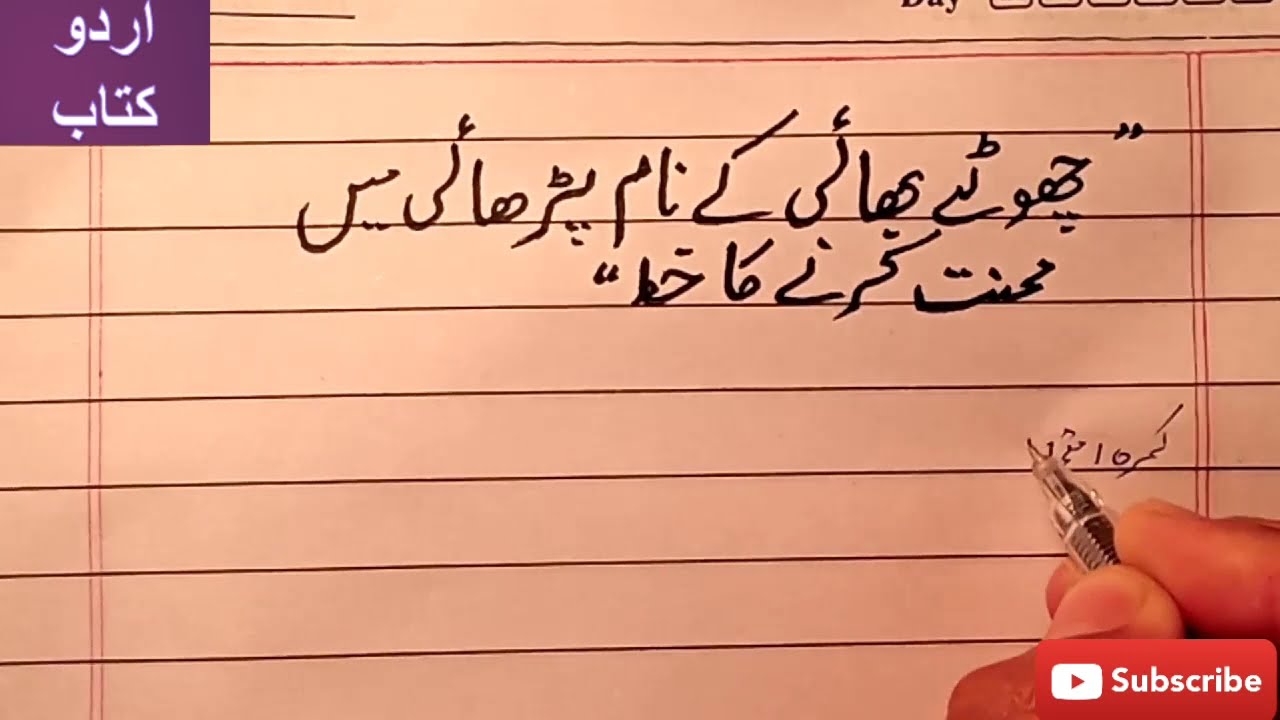 اردو
کتاب
Day
”چھوٹے بھائی کے نام پڑھائی میں
محنت کرنے کا خط“
کمرہ
Subscribe